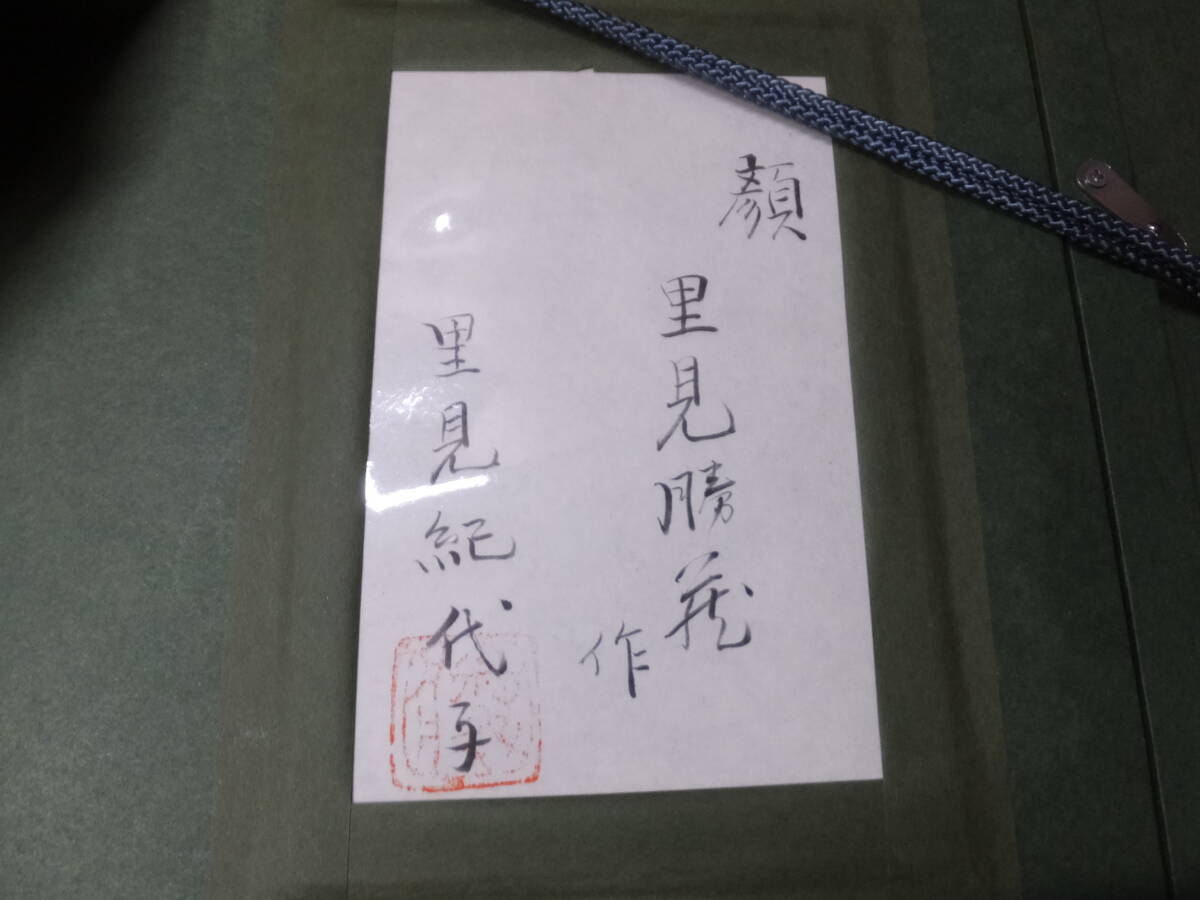 顔
里見勝蔵
作
里見紀代子